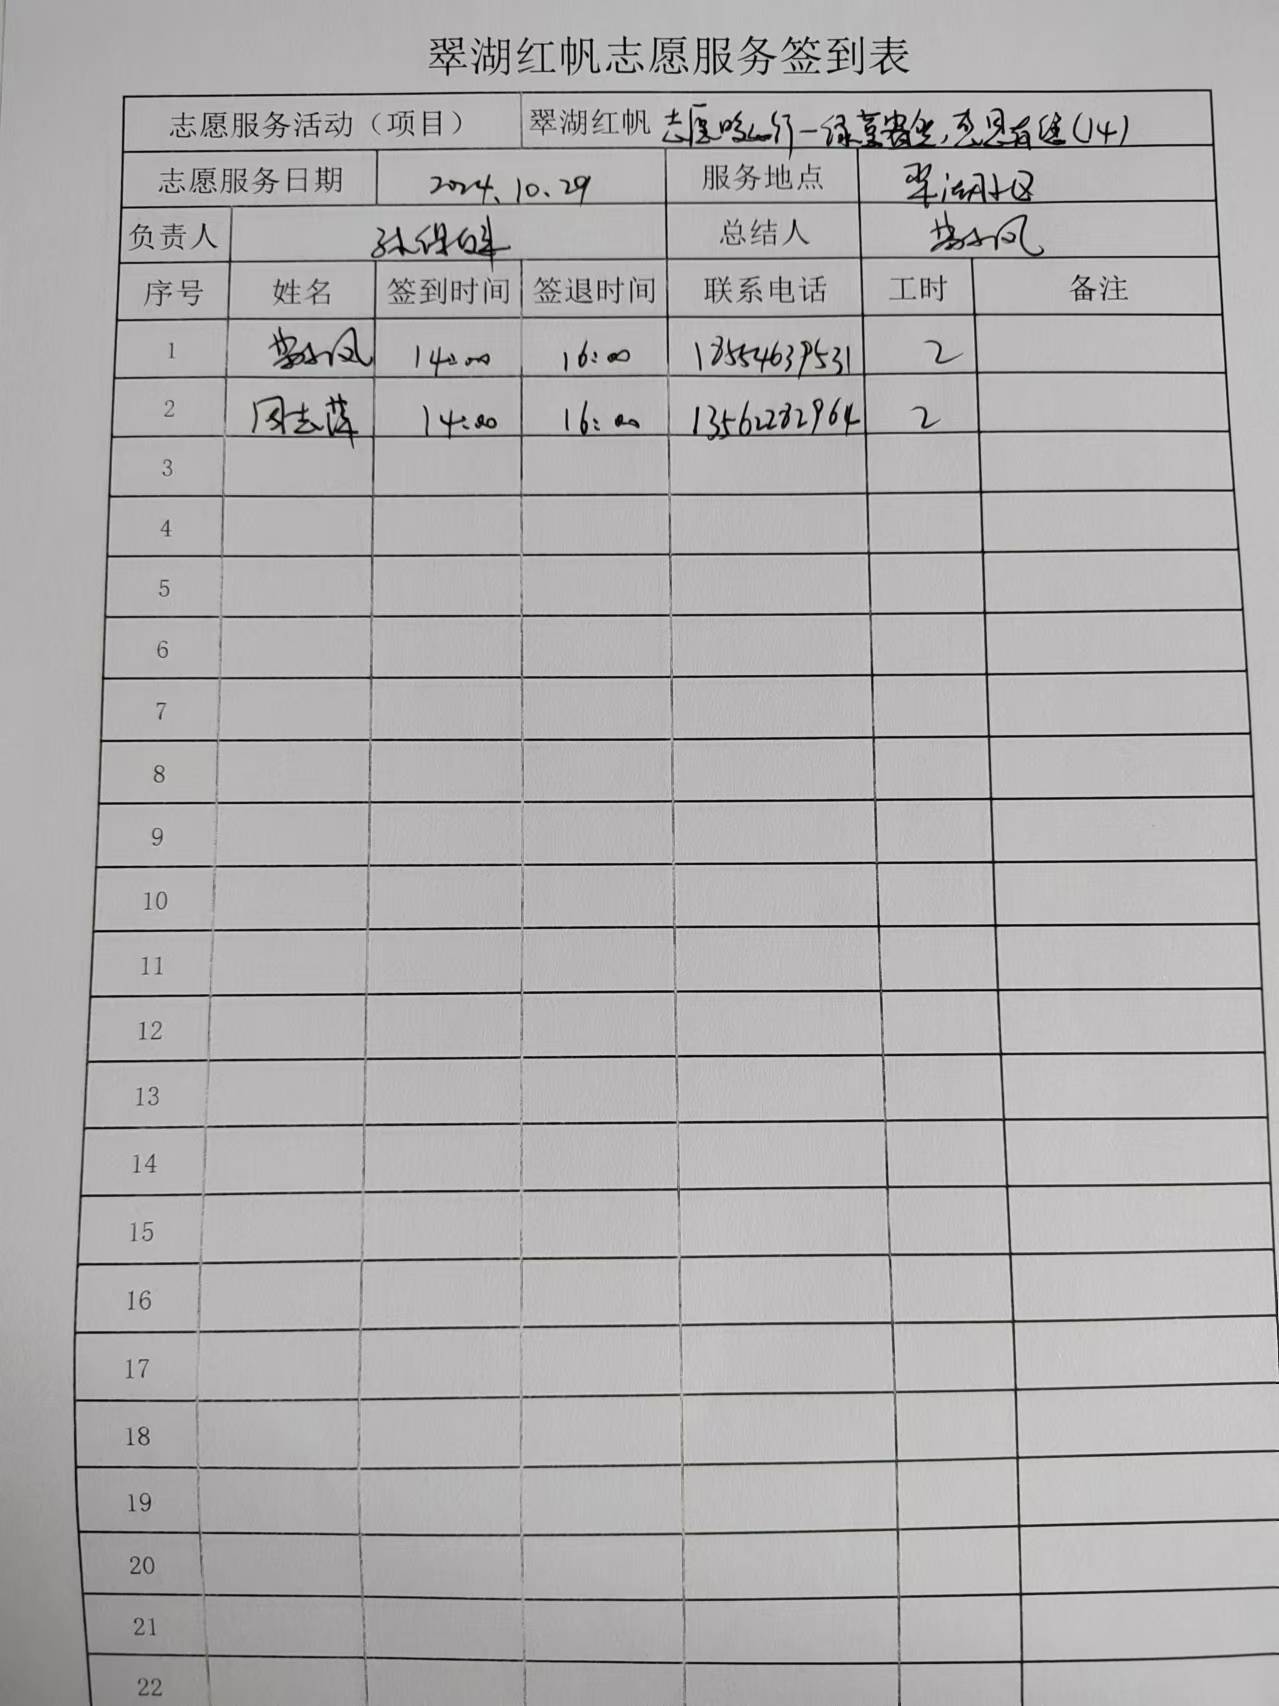 翠湖红帆志愿服务签到表
志愿服务活动（项目） 翠湖红帆 志愿 行—绿 (14)
志愿服务日期 2024.10.29 服务地点 翠湖社区
负责人 总结人
序号 姓名 签到时间 签退时间 联系电话 工时 备注
1 14:00 16:00 18554639531 2
2 周志萍 14:00 16:00 13562282964 2
3
4
5
6
7
8
9
10
11
12
13
14
15
16
17
18
19
20
21
22